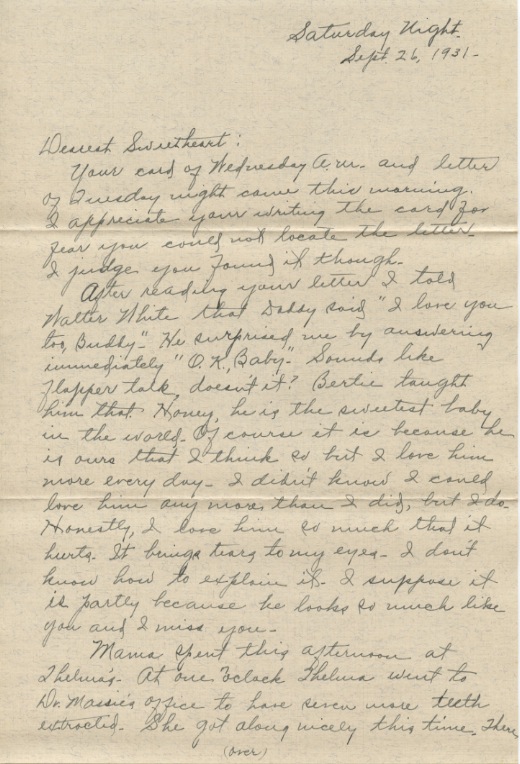 Saturday Night.
Sept. 26, 1931-
Dearest Sweetheart:
Your card of Wednesday A.M. and letter
of Tuesday night came this morning.
I appreciate your writing the card for
fear you could not locate the letter-
I judge you found it though.
After reading your letter I told
Walter White that Daddy said "I love you
too, Buddy." He surprised me by answering
immediately "O.K., Baby." Sounds like
flapper talk, doesn't it? Bertie taught
him that. Honey, he is the sweetest baby
in the world. Of course it is because he
is ours that I think so but I love him
more every day- I didn't know I could
love him any more than I did, but I do-
Honestly, I love him so much that it
hurts. It brings tears to my eyes- I don't
know how to explain it- I suppose it
is partly because he looks so much like
you and I miss you-
Mama spent this afternoon at
Thelmas- At one o'clock Thelma went to
Dr. Massie's office to have seven more teeth
extracted- She got along nicely this time. There
(over)